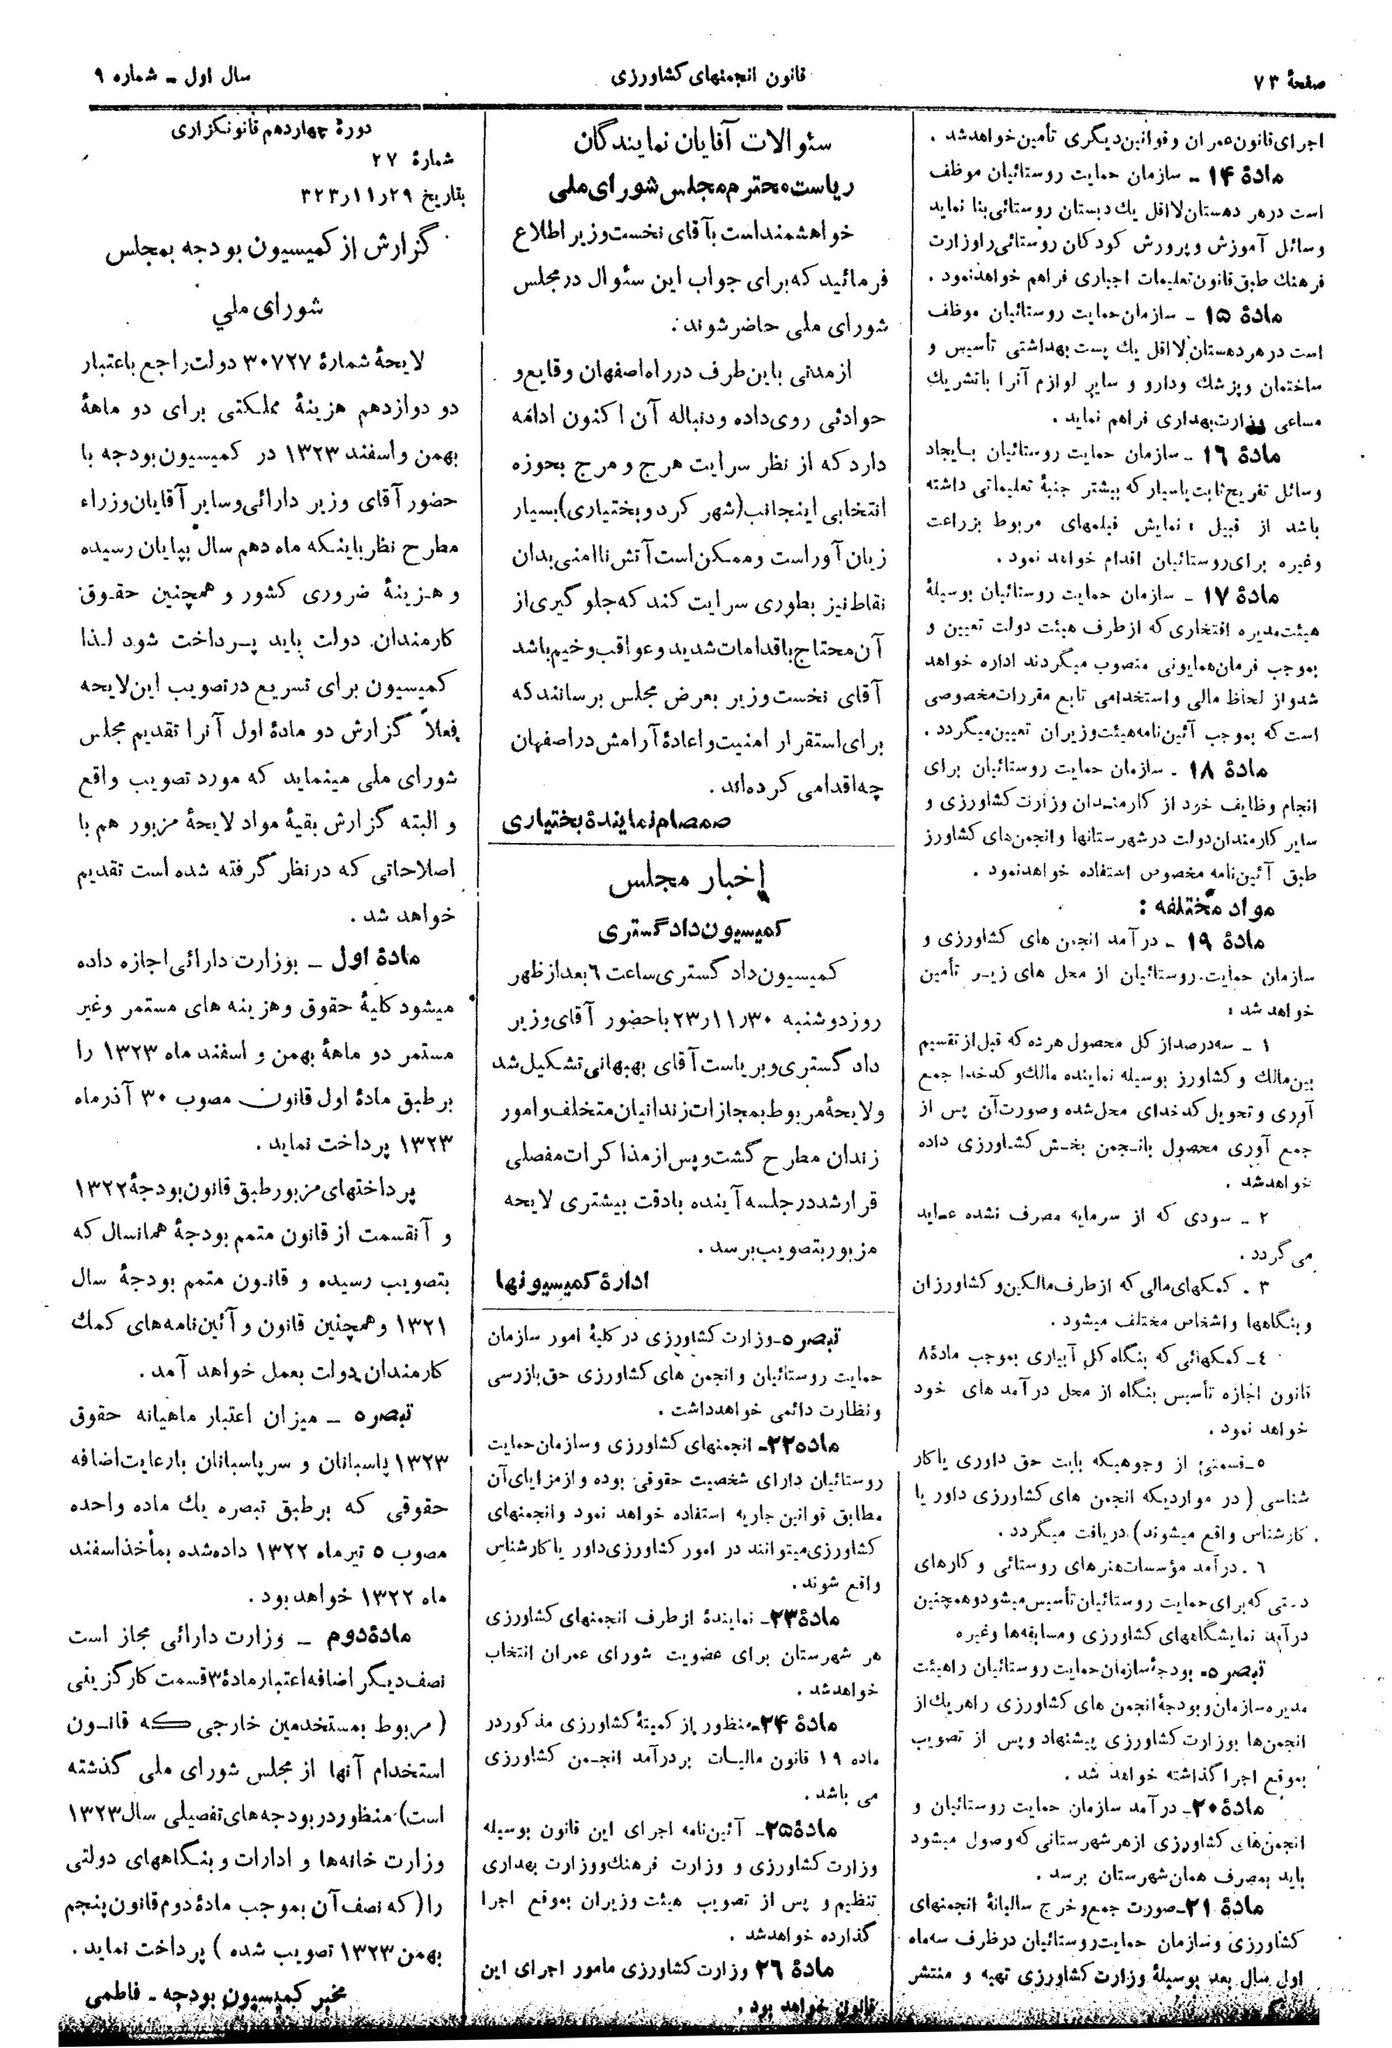 صفحهٔ ۷۳
قانون انجمنهای کشاورزی
سال اول - شماره ۹
اجرای قانون عمران وقوانین دیگری تأمین خواهد شد .
مادهٔ ۱۴ - سازمان حمایت روستائیان موظف
است در هر دهستان لااقل یك دبستان روستائی بنا نماید
وسائل آموزش و پرورش کودکان روستائی را وزارت
فرهنك طبق قانون تعلیمات اجباری فراهم خواهد نمود .
مادهٔ ۱۵ - سازمان حمایت روستائیان موظف
است در هر دهستان لااقل یك پست بهداشتی تأسیس و
ساختمان و پزشك و دارو و سایر لوازم آنرا با تشریك
مساعی وزارت بهداری فراهم نماید .
مادهٔ ۱۶ - سازمان حمایت روستائیان بایجاد
وسائل تفریح ثابت یا سیار که بیشتر جنبهٔ تعلیماتی داشته
باشد از قبیل : نمایش فیلمهای مربوط بزراعت
وغیره برای روستائیان اقدام خواهد نمود .
مادهٔ ۱۷ - سازمان حمایت روستائیان بوسیلهٔ
هیئت مدیره افتخاری که از طرف هیئت دولت تعیین و
بموجب فرمان همایونی منصوب میگردند اداره خواهد
شد و از لحاظ مالی و استخدامی تابع مقررات مخصوصی
است که بموجب آئین نامه هیئت وزیران تعیین میگردد .
مادهٔ ۱۸ - سازمان حمایت روستائیان برای
انجام وظایف خود از کارمندان وزارت کشاورزی و
سایر کارمندان دولت در شهرستانها و انجمن های کشاورز
طبق آئین نامه مخصوص استفاده خواهد نمود .
مواد مختلفه :
مادهٔ ۱۹ - درآمد انجمن های کشاورزی و
سازمان حمایت روستائیان از محل های زیر تأمین
خواهد شد :
۱ - سه درصد از کل محصول هر ده که قبل از تقسیم
بین مالك و کشاورز بوسیله نماینده مالك و کدخدا جمع
آوری و تحویل کدخدای محل شده و صورت آن پس از
جمع آوری محصول بانجمن بخش کشاورزی داده
خواهد شد .
۲ - سودی که از سرمایه مصرف نشده عاید
می گردد .
۳ - کمکهای مالی که از طرف مالکین و کشاورزان
و بنگاهها و اشخاص مختلف میشود .
٤ - کمکهائی که بنگاه کل آبیاری بموجب مادهٔ ۸
قانون اجازه تأسیس بنگاه از محل درآمد های خود
خواهد نمود .
۵ - قسمتی از وجوهیکه بابت حق داوری یا کار
شناسی ( در مواردیکه انجمن های کشاورزی داور یا
کارشناس واقع میشوند ) دریافت میگردد .
٦ - درآمد مؤسسات هنرهای روستائی و کارهای
دستی که برای حمایت روستائیان تأسیس میشود و همچنین
درآمد نمایشگاههای کشاورزی و مسابقه ها وغیره
تبصره - بودجهٔ سازمان حمایت روستائیان را هیئت
مدیره سازمان و بودجهٔ انجمن های کشاورزی را هریك از
انجمن ها بوزارت کشاورزی پیشنهاد و پس از تصویب
بموقع اجرا گذاشته خواهد شد .
مادهٔ ۲۰ - درآمد سازمان حمایت روستائیان و
انجمن های کشاورزی از هر شهرستانی که وصول میشود
باید بمصرف همان شهرستان برسد .
مادهٔ ۲۱ - صورت جمع و خرج سالیانهٔ انجمنهای
کشاورزی و سازمان حمایت روستائیان در ظرف سه ماه
اول سال بعد بوسیلهٔ وزارت کشاورزی تهیه و منتشر
سئوالات آقایان نمایندگان
ریاست محترم مجلس شورای ملی
خواهشمند است بآقای نخست وزیر اطلاع
فرمائید که برای جواب این سئوال در مجلس
شورای ملی حاضر شوند :
از مدتی باین طرف در راه اصفهان وقایع و
حوادثی روی داده و دنباله آن اکنون ادامه
دارد که از نظر سرایت هرج و مرج بحوزه
انتخابی اینجانب (شهر کرد و بختیاری) بسیار
زیان آور است و ممکن است آتش ناامنی بدان
نقاط نیز بطوری سرایت کند که جلو گیری از
آن محتاج باقدامات شدید و عواقب وخیم باشد
آقای نخست وزیر بعرض مجلس برسانند که
برای استقرار امنیت و اعادهٔ آرامش در اصفهان
چه اقدامی کرده اند .
صمصام نمایندهٔ بختیاری
اخبار مجلس
کمیسیون دادگستری
کمیسیون دادگستری ساعت ٦ بعد از ظهر
روز دوشنبه ۲۳٫۱۱٫۳۰ با حضور آقای وزیر
دادگستری و بریاست آقای بهبهانی تشکیل شد
و لایحهٔ مربوط بمجازات زندانیان متخلف و امور
زندان مطرح گشت و پس از مذاکرات مفصلی
قرار شد در جلسه آینده با دقت بیشتری لایحه
مزبور بتصویب برسد .
ادارهٔ کمیسیونها
تبصره - وزارت کشاورزی در کلیهٔ امور سازمان
حمایت روستائیان و انجمن های کشاورزی حق بازرسی
و نظارت دائمی خواهد داشت .
ماده ۲۲ - انجمنهای کشاورزی و سازمان حمایت
روستائیان دارای شخصیت حقوقی بوده و از مزایای آن
مطابق قوانین جاریه استفاده خواهد نمود و انجمنهای
کشاورزی میتوانند در امور کشاورزی داور یا کارشناس
واقع شوند .
مادهٔ ۲۳ - نمایندهٔ از طرف انجمنهای کشاورزی
هر شهرستان برای عضویت شورای عمران انتخاب
خواهد شد .
مادهٔ ۲۴ - منظور از کمیتهٔ کشاورزی مذکور در
ماده ۱۹ قانون مالیات بردرآمد انجمن کشاورزی
می باشد .
مادهٔ ۲۵ - آئین نامه اجرای این قانون بوسیله
وزارت کشاورزی و وزارت فرهنك و وزارت بهداری
تنظیم و پس از تصویب هیئت وزیران بموقع اجرا
گذارده خواهد شد .
مادهٔ ۲۶ وزارت کشاورزی مامور اجرای این
قانون خواهد بود .
دورهٔ چهاردهم قانونگزاری
شمارهٔ ۲۷
بتاریخ ۲۹ر۱۱ر۳۲۳
گزارش از کمیسیون بودجه بمجلس
شورای ملی
لایحهٔ شمارهٔ ۳۰۷۲۷ دولت راجع باعتبار
دو دوازدهم هزینهٔ مملکتی برای دو ماههٔ
بهمن و اسفند ۱۳۲۳ در کمیسیون بودجه با
حضور آقای وزیر دارائی و سایر آقایان وزراء
مطرح نظر باینکه ماه دهم سال بپایان رسیده
و هزینهٔ ضروری کشور و همچنین حقوق
کارمندان دولت باید پرداخت شود لذا
کمیسیون برای تسریع در تصویب این لایحه
فعلاً گزارش دو مادهٔ اول آنرا تقدیم مجلس
شورای ملی مینماید که مورد تصویب واقع
و البته گزارش بقیهٔ مواد لایحهٔ مزبور هم با
اصلاحاتی که در نظر گرفته شده است تقدیم
خواهد شد .
مادهٔ اول - بوزارت دارائی اجازه داده
میشود کلیهٔ حقوق و هزینه های مستمر و غیر
مستمر دو ماههٔ بهمن و اسفند ماه ۱۳۲۳ را
برطبق مادهٔ اول قانون مصوب ۳۰ آذر ماه
۱۳۲۳ پرداخت نماید .
پرداختهای مزبور طبق قانون بودجهٔ ۱۳۲۲
و آنقسمت از قانون متمم بودجهٔ همانسال که
بتصویب رسیده و قانون متمم بودجهٔ سال
۱۳۲۱ و همچنین قانون و آئین نامه های کمك
کارمندان دولت بعمل خواهد آمد .
تبصره - میزان اعتبار ماهیانه حقوق
۱۳۲۳ پاسبانان و سرپاسبانان با رعایت اضافه
حقوقی که برطبق تبصره یك ماده واحده
مصوب ۵ تیر ماه ۱۳۲۲ داده شده بمأخذ اسفند
ماه ۱۳۲۲ خواهد بود .
مادهٔ دوم - وزارت دارائی مجاز است
نصف دیگر اضافه اعتبار مادهٔ ۳ قسمت کارگزینی
( مربوط بمستخدمین خارجی که قانون
استخدام آنها از مجلس شورای ملی گذشته
است ) منظور در بودجه های تفصیلی سال ۱۳۲۳
وزارت خانه ها و ادارات و بنگاههای دولتی
را ( که نصف آن بموجب مادهٔ دوم قانون پنجم
بهمن ۱۳۲۳ تصویب شده ) پرداخت نماید .
مخبر کمیسیون بودجه - فاطمی